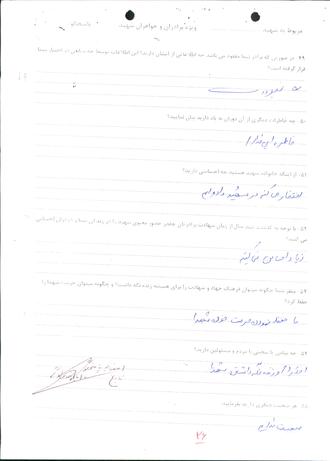 مربوط به شهید: ویژه برادران و خواهران شهید
۴۹- در صورتی که برادر شما مفقود می باشد چه اطلاعاتی از ایشان دارید؟ این اطلاعات توسط چه کسانی در اختیار شما
قرار گرفته است؟
۵۰- چه خاطرات دیگری از آن دوران به یاد دارید بیان نمایید؟
خاطره ای ندارم
۵۱- از اینکه خانواده شهید هستید چه احساسی دارید؟
افتخار می کنم که شهید داده ایم
۵۲- با توجه به گذشت چند سال از زمان شهادت برادرتان چقدر حضور معنوی شهید را در زندگی خودتان احساس
می کنید؟
زیاد احساس می کنیم
۵۳- بنظر شما چگونه میتوان فرهنگ جهاد و شهادت را برای همیشه زنده نگه داشت؟ و چگونه میتوان حرمت شهدا را
حفظ کرد؟
با حفظ نمودن حرمت خون شهدا
۵۴- چه پیامی یا سخنی با مردم و مسئولین دارید؟
۵۵- هر صحبت دیگری دارید بفرمایید.
صحبت ندارم
۲۶